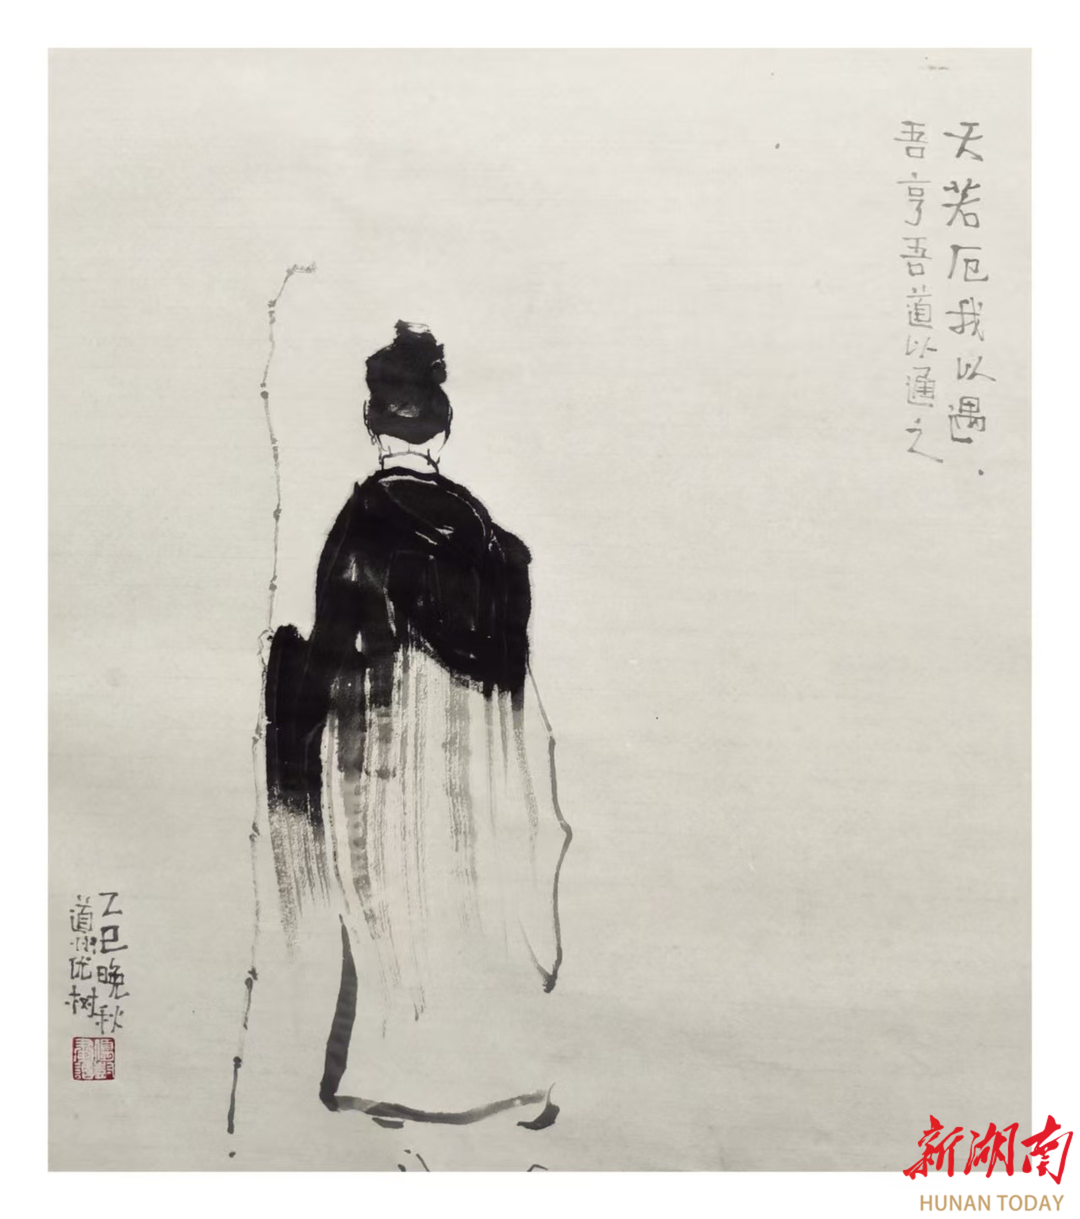 天若厄我以遇
吾亨吾道以通之
乙巳晚秋
道州优树
新湖南
HUNAN TODAY